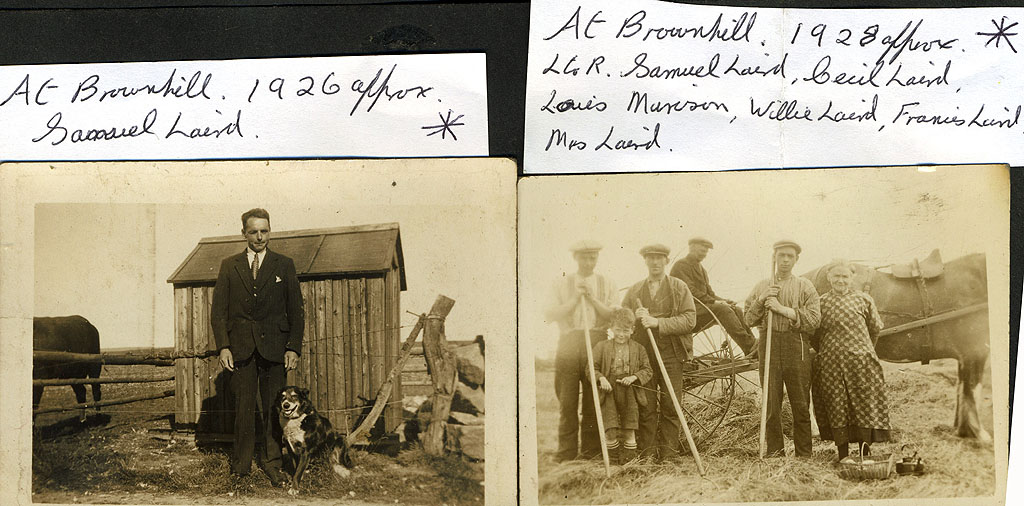 At Brownhill. 1926 approx.
Samuel Laird. *
At Brownhill. 1928 approx. *
L to R. Samuel Laird, Cecil Laird,
Louis Murcison, Willie Laird, Francis Laird
Mrs Laird.